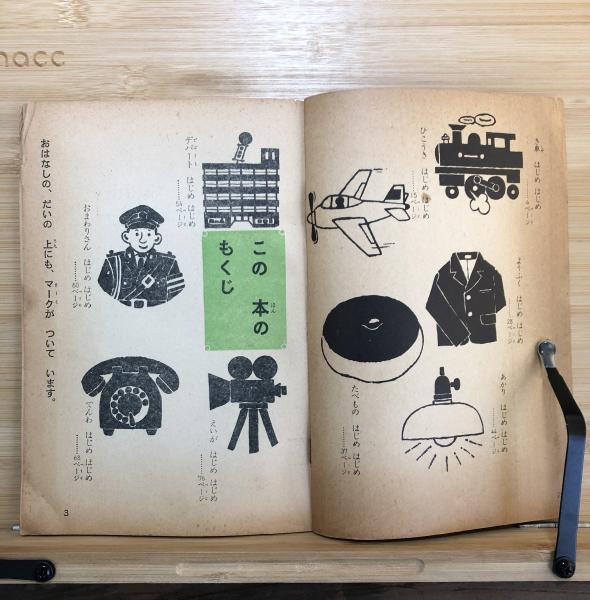 この 本の
もくじ
き車 はじめ はじめ
………4ページ
ひこうき はじめ はじめ
………15ページ
ようふく はじめ はじめ
………28ページ
あかり はじめ はじめ
たべもの はじめ はじめ
………37ページ
デパート はじめ はじめ
………54ページ
おまわりさん はじめ はじめ
………60ページ
でんわ はじめ はじめ
………68ページ
えいが はじめ はじめ
………76ページ
おはなしの、だいの 上にも、マークが ついて います。
3
nacc